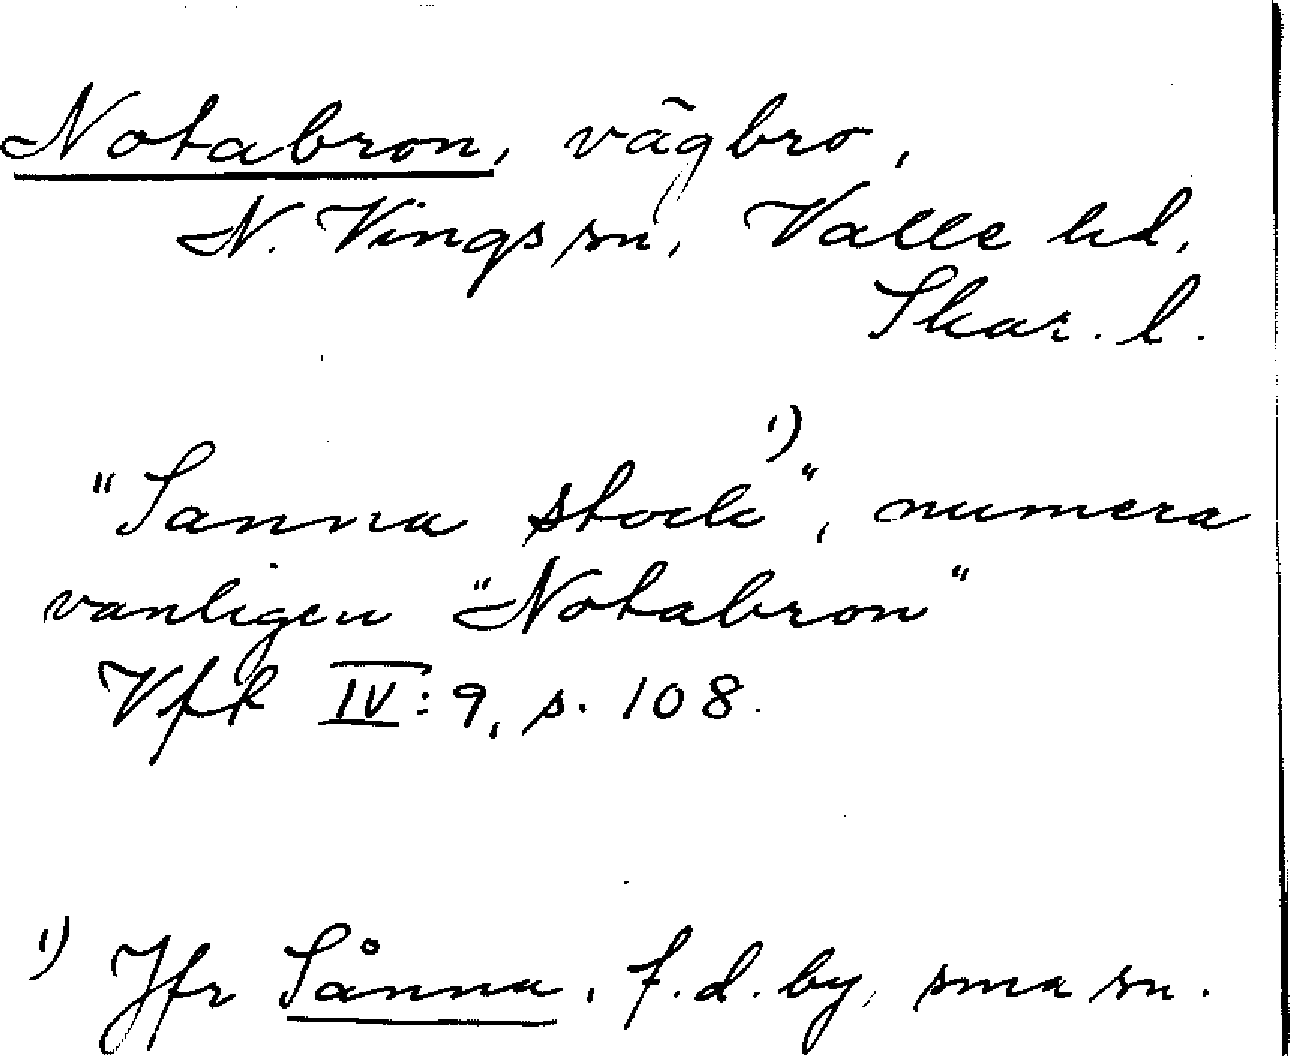 Notabron, vägbro,
N. Vings sn, Valle hd,
Skar. l.
"Sanna stock¹⁾", numera
vanligen "Notabron"
Vfk IV:9, s. 108.
¹⁾ Jfr Sånna, f.d. by, sma sn.